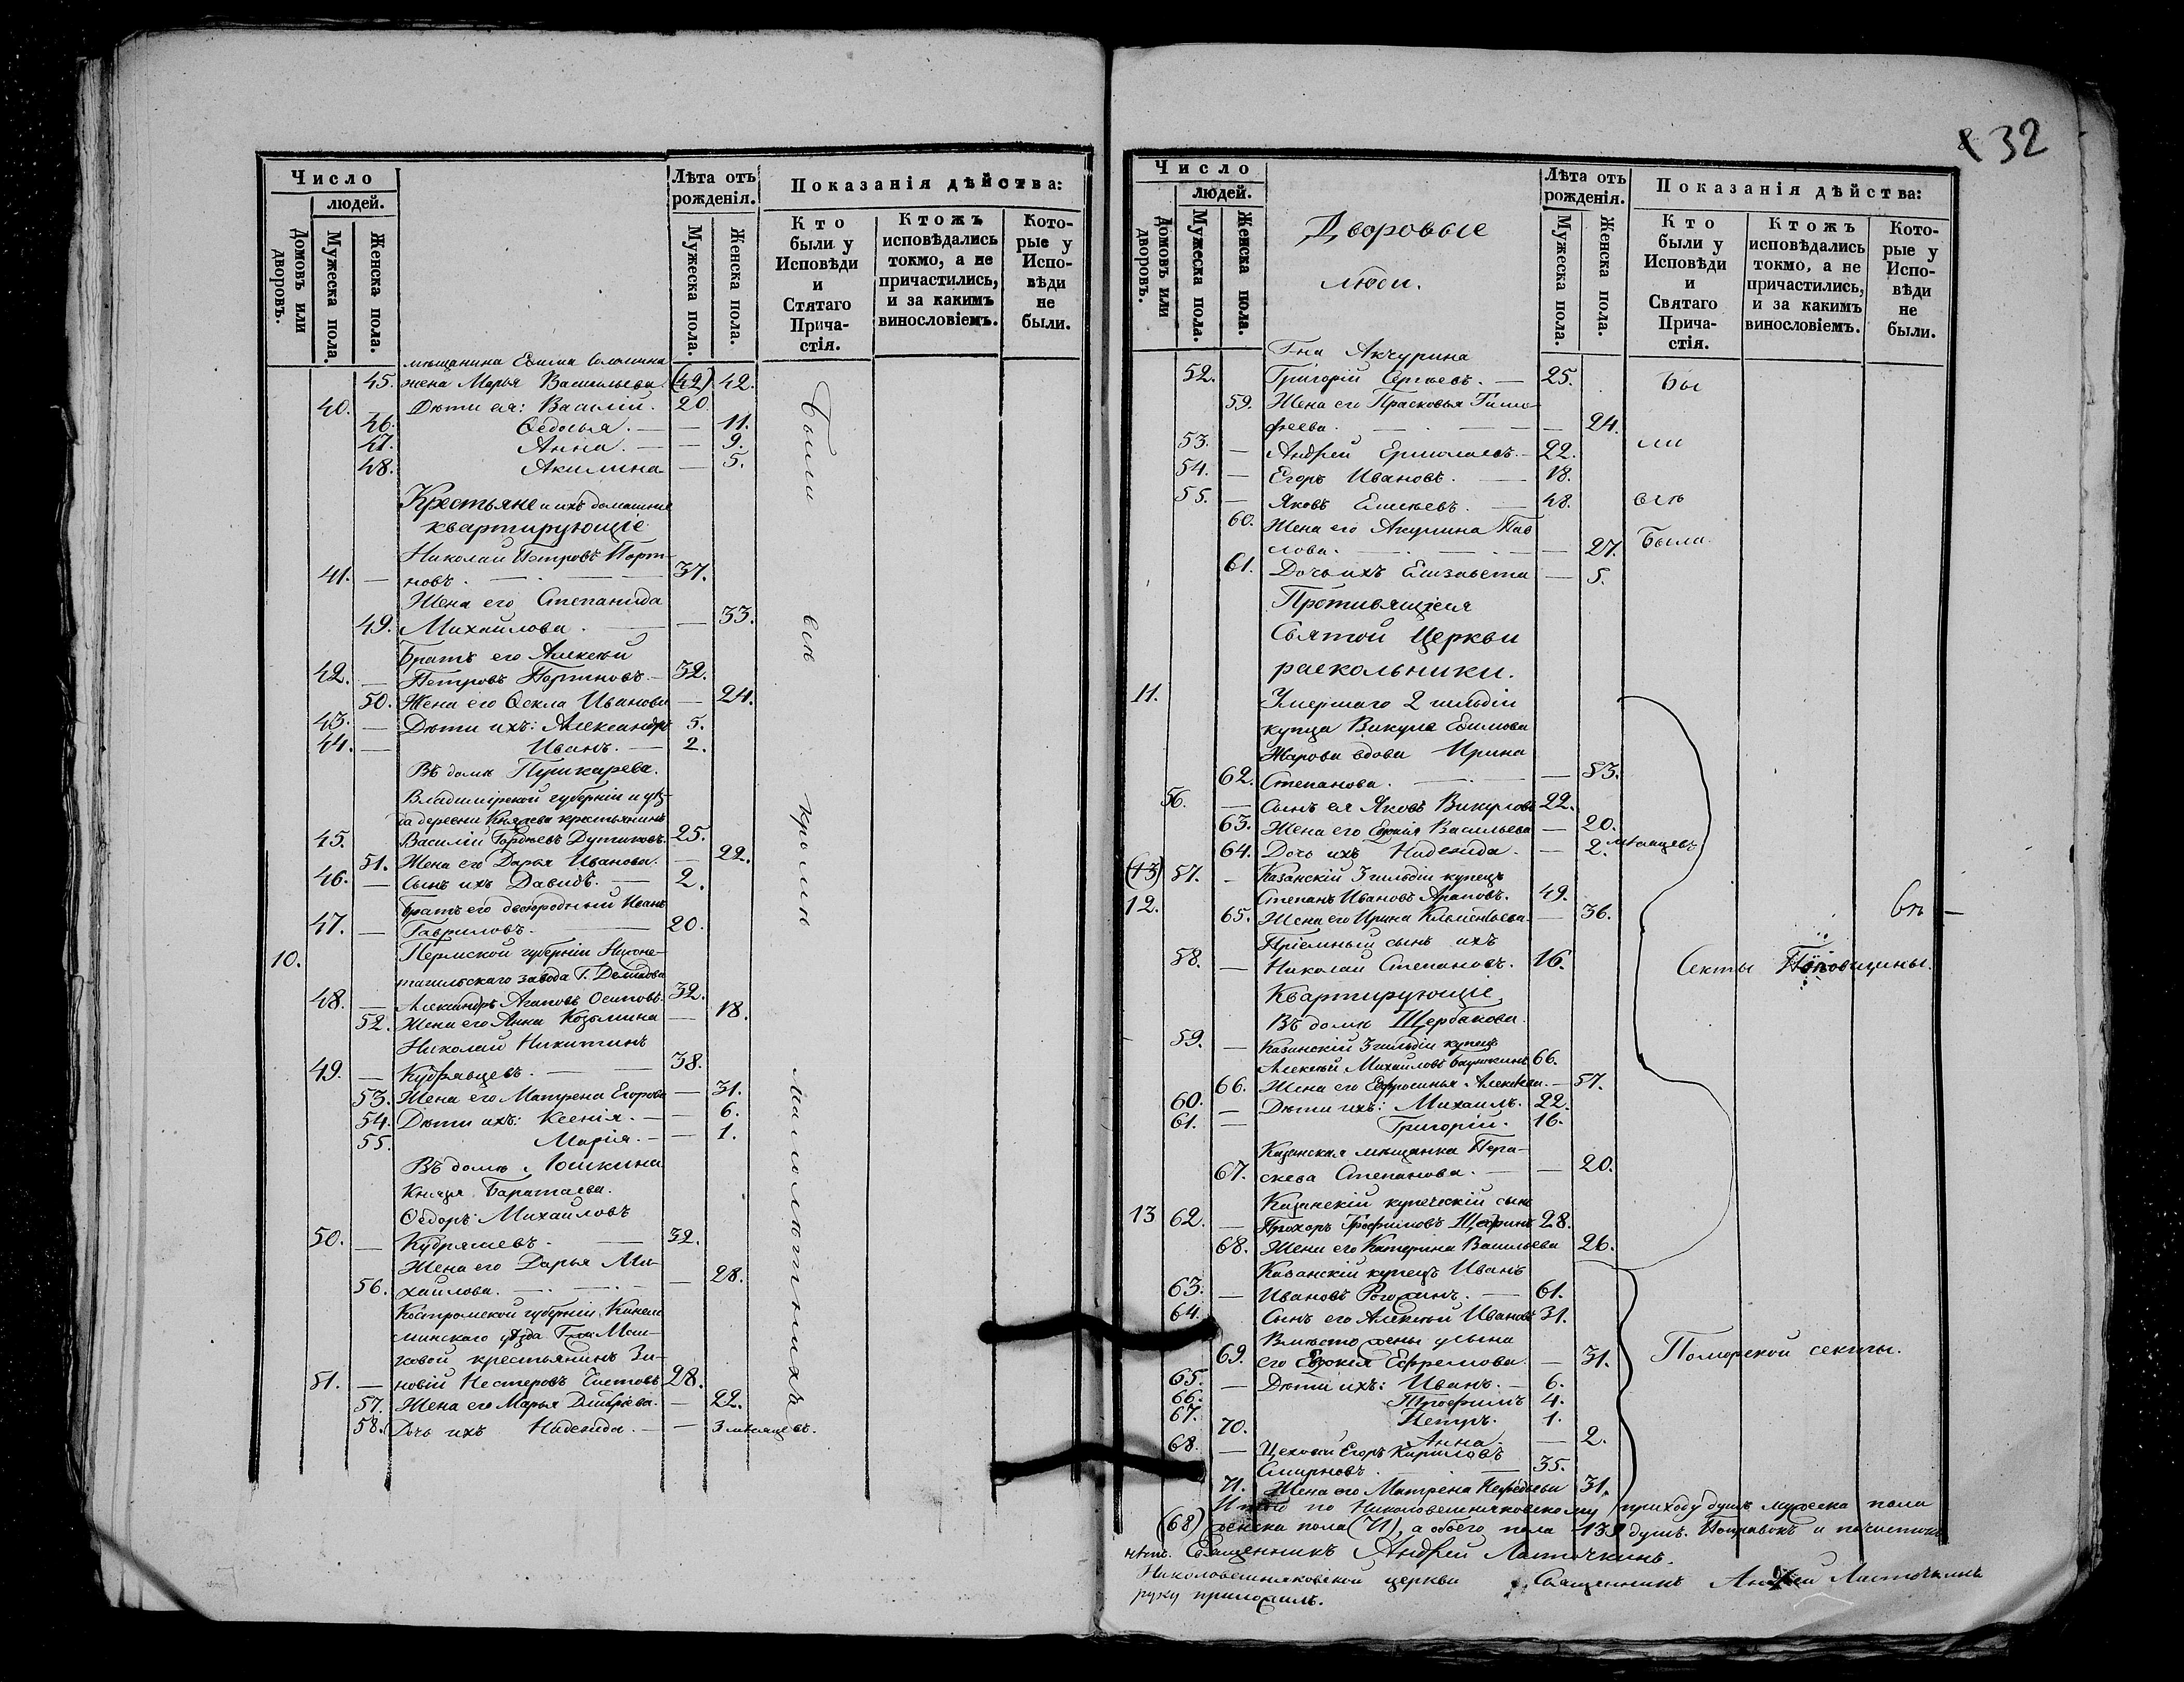 Число
людей.
Домовъ или дворовъ.
Мужеска пола.
Женска пола.
Лѣта отъ рожденія.
Мужеска пола.
Женска пола.
Показанія дѣйства:
Кто были у Исповѣди и Стятаго Прича-стія.
Ктожъ исповѣдались токмо, а не причастились, и за какимъ винословіемъ.
Кото-рые у Испо-вѣди не были.
мѣщанина Ефима
45. жена Марья Васильева. (42) 42.
40. Дѣти ея: Василій. 20.
46. Ѳедосья. — — 11.
47. Анна. — — 9.
48. Акилина — 5.
Крестьяне и ихъ домашніе
квартирующіе
Николай Петровъ Порт-
41. — новъ. 37.
Жена его Степанида
49. Михайлова. — 33.
Братъ его Алексѣй
42. — Петровъ Портновъ. — 32.
50. Жена его Ѳекла Иванова — 24.
43. — Дѣти ихъ: Александръ 5.
44. — Иванъ. — 2.
Въ домѣ Пушкарева.
Владимірской губерніи и уѣз-
да деревни Князева крестьянинъ
45. Василій Гордѣевъ Дутиковъ. 25.
51. Жена его Дарья Иванова. — 22.
46. — Сынъ ихъ Давидъ. — 2.
Братъ его двоюродный Иванъ
47. — Гавриловъ. 20.
10. Пермской губерніи Нижне-
тагильскаго завода Г. Демидова
48. — Александръ Агаповъ Осиповъ. 32.
52. Жена его Анна Козьмина — 18.
Николай Никитинъ
49. — Кудрявцевъ. — 38.
53. Жена его Матрена Егорова — 31.
54. Дѣти ихъ: Ксенія. — — 6.
55. Марія. — — 1.
Въ домѣ Юшкина
Князя Баратаева.
Ѳедоръ Михайловъ
50. — Кудряшевъ. — 32.
Жена его Дарья Ми-
56. хайлова. — 28.
Костромской губерніи Кинеш-
минскаго уѣзда Гжи Мош-
ковой крестьянинъ Зи-
51. — новій Нестеровъ Чистовъ 28.
57. Жена его Марья Дмитріева. — 22.
58. Дочь ихъ Надежда. — — 3 мѣсяцевъ.
Были всѣ кромѣ малолѣтнихъ
32
Число
людей.
Домовъ или дворовъ.
Мужеска пола.
Женска пола.
Дворовые
люди.
Лѣта отъ рожденія.
Мужеска пола.
Женска пола.
Показанія дѣйства:
Кто были у Исповѣди и Святаго Прича-стія.
Ктожъ исповѣдались токмо, а не причастились, и за какимъ винословіемъ.
Кото-рые у Испо-вѣди не были.
Гна Акчурина
52. Григорій Сергѣевъ. — 25. Бы
59. Жена его Прасковья Тимо-
фѣева. — 24.
53. — Андрей Ермолаевъ. — 22. ли
54. — Егоръ Ивановъ. — 18.
55. — Яковъ Елисѣевъ. — 48. всѣ
60. Жена его Акулина Пав
лова. — 27. Была.
61. Дочь ихъ Елизавета — 5.
Противящіеся
Святой Церкви
раскольники.
11. Умершаго 2 гильдіи
купца Викула Ефимова
Жарова вдова Ирина
62. Степанова. — 53.
56. — Сынъ ея Яковъ Викуловъ 22.
63. Жена его Евфимія Васильева — 20.
64. Дочь ихъ Надежда. — 2. мѣсяцевъ
(13) 57. — Казанскій 3 гильдіи купецъ
12. Степанъ Ивановъ Араповъ. 49.
65. Жена его Ирина Климентьева. — 36.
Пріемный сынъ ихъ
58. — Николай Степановъ. 16.
Секты Поповщины.
Всѣ —
Квартирующіе
Въ домѣ Щербакова.
59. — Казанскій 3 гильдіи купецъ
Алексѣй Михайловъ 66.
66. Жена его Ефросинья Алексѣева. — 57.
60. — Дѣти ихъ: Михаилъ. 22.
61. — Григорій. 16.
Казанская мѣщанка Пера-
67. скева Степанова. — — 20.
Казанскій купеческій сынъ
13 62. — Прохоръ Трофимовъ Щетринъ 28.
68. Жена его Катерина Васильева 26.
Казанскій купецъ Иванъ
63. — Ивановъ Рогожинъ. — 61.
64. Сынъ его Алексѣй Ивановъ 31.
Вмѣсто жены у сына
69. его Евдокія Ефремова. — 31.
Поморской секты.
65. — Дѣти ихъ: Иванъ. — 6.
66. Трофимъ 4.
67. Петръ. 1.
70. Анна — 2.
68. — Цеховой Егоръ Кириловъ
Смирновъ. 35.
71. Жена его Матрена 31.
Итого по Николовешняковскому приходу душъ мужеска пола
(68) женска пола (71), а обоего пола 139 душъ. Поправокъ и почистокъ
нѣтъ. Священникъ Андрей Ласточкинъ.
Николовешняковской церкви Священникъ Андрей Ласточкинъ
руку приложилъ.